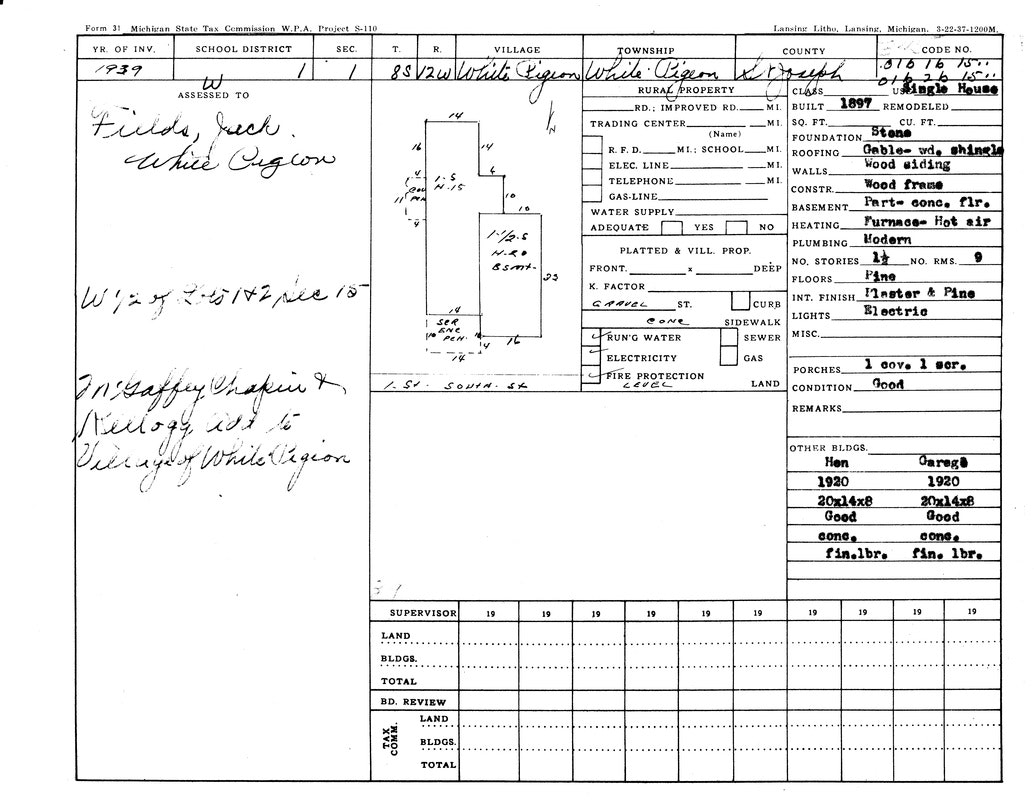 Form 31 Michigan State Tax Commission W.P.A. Project S-110
Lansing Litho, Lansing, Michigan. 3-22-37-1200M.
YR. OF INV. SCHOOL DISTRICT SEC. T. R. VILLAGE TOWNSHIP COUNTY CODE NO.
1939 1 1 8S 12W White Pigeon White Pigeon St Joseph 016 16 15
016 26 15
W
ASSESSED TO
Fields, Jack.
White Pigeon
W 1/2 of Lots 1 & 2 Sec 15
McGaffey Chapin &
Kellogg add to
Village of White Pigeon
14
N
16
14
1-S
H-15
4
COV
PCH
11
4
6
10
10
1-1/2-S
H-20
BSMT-
23
14
SCR
ENC
PCH.
10
10
4
16
4
14
RURAL PROPERTY
RD.; IMPROVED RD. MI.
TRADING CENTER MI.
(Name)
R. F. D. MI.; SCHOOL MI.
ELEC. LINE MI.
TELEPHONE MI.
GAS-LINE
WATER SUPPLY
ADEQUATE YES NO
PLATTED & VILL. PROP.
FRONT. x DEEP
K. FACTOR
GRAVEL ST. CURB
CONC SIDEWALK
RUN'G WATER SEWER
ELECTRICITY GAS
FIRE PROTECTION
LEVEL LAND
1. St. SOUTH. St
CLASS US Single House
BUILT 1897 REMODELED
SQ. FT. CU. FT.
FOUNDATION Stone
ROOFING Gable- wd. shingle
WALLS Wood siding
CONSTR. Wood frame
BASEMENT Part- conc. flr.
HEATING Furnace- Hot air
PLUMBING Modern
NO. STORIES 1½ NO. RMS. 9
FLOORS Pine
INT. FINISH Plaster & Pine
LIGHTS Electric
MISC.
PORCHES 1 cov. 1 scr.
CONDITION Good
REMARKS
OTHER BLDGS.
Hen Garage
1920 1920
20x14x8 20x14x8
Good Good
conc. conc.
fin.lbr. fin. lbr.
SUPERVISOR 19 19 19 19 19 19 19 19 19 19
LAND
BLDGS.
TOTAL
BD. REVIEW
TAX COMM.
LAND
BLDGS.
TOTAL